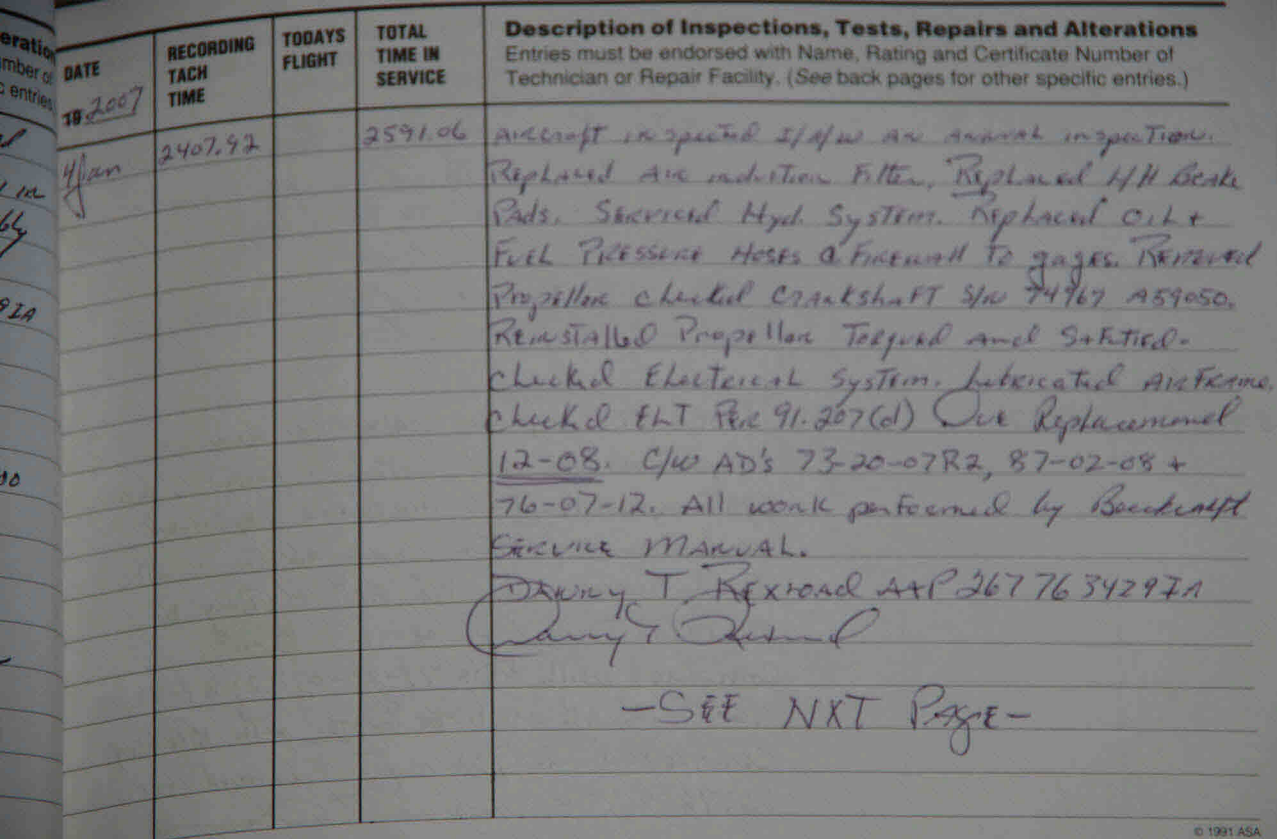 eration
mber of
c entries
DATE
19 2007
RECORDING
TACH
TIME
TODAYS
FLIGHT
TOTAL
TIME IN
SERVICE
Description of Inspections, Tests, Repairs and Alterations
Entries must be endorsed with Name, Rating and Certificate Number of
Technician or Repair Facility. (See back pages for other specific entries.)
4 Jan
2407.92
2591.06
Aircraft inspected I/A/W an annual inspection.
Replaced Air induction Filter, Replaced Brake
Pads. Serviced Hyd. System. Replaced Oil +
Fuel Pressure Hoses @ Firewall to gages. Removed
Propellor checked Crankshaft S/N 74967 A59050.
Reinstalled Propellor Torqued and Saftied.
Checked Electrical System. Lubricated Airframe.
Checked ELT Per 91.207(d) Due Replacement
12-08. C/W AD's 73-20-07R2, 87-02-08 +
76-07-12. All work performed by Beechcraft
Service Manual.
Danny T. Rexroad A+P 267763429IA
-SEE NXT PAGE-
© 1991 ASA